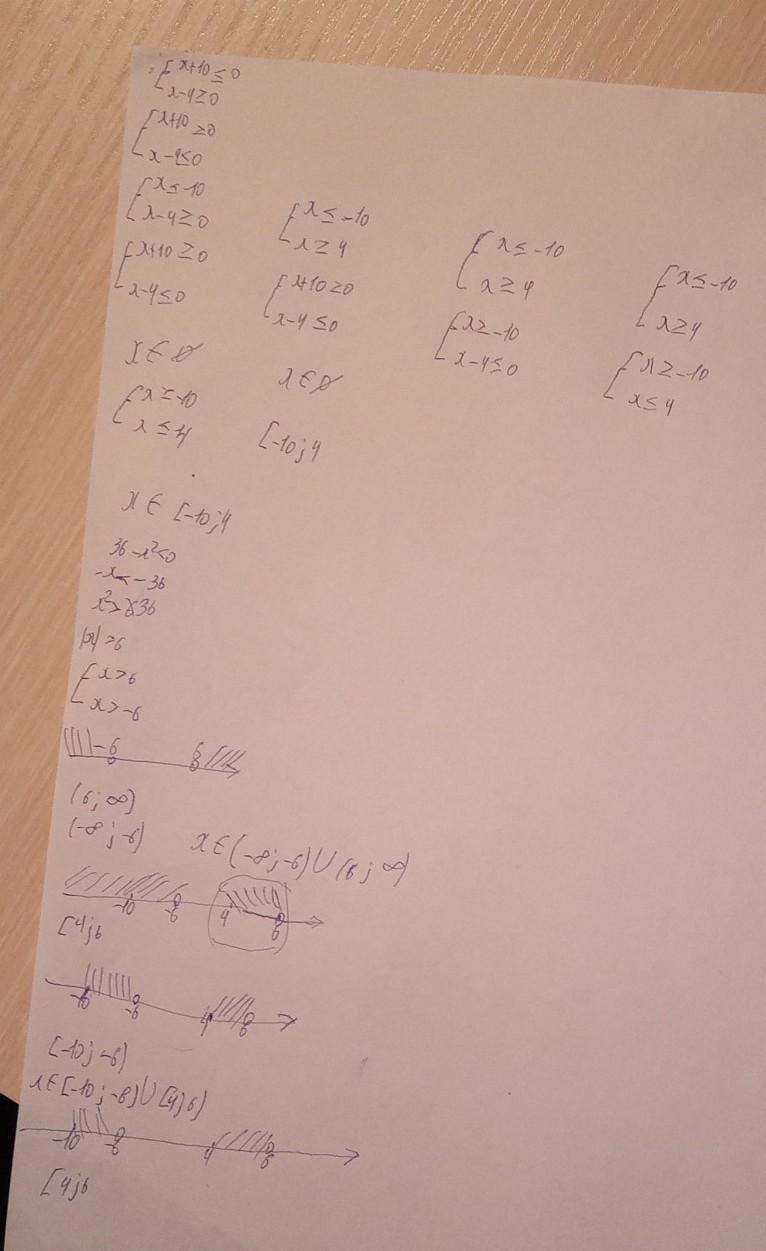 {x+10≤0
x-4≥0
{x+10≥0
x-4≤0
{x≤-10
x-4≥0
{x+10≥0
x-4≤0
x∈∅
{x≥-10
x≤4
{x≤-10
x≥4
{x+10≥0
x-4≤0
x∈∅
[-10;4
{x≤-10
x≥4
{x≥-10
x-4≤0
{x≤-10
x≥4
{x≥-10
x≤4
x∈[-10;4
36-x²<0
-x<-36
x²>36
|x|>6
[x>6
x>-6
-6 6
(6;∞)
(-∞;-6) x∈(-∞;-6)∪(6;∞)
-10 -6 4 6
[4;6
-10 -6 4 6
[-10;-6)
x∈[-10;-6)∪[4;6)
-10 -6 4 6
[4;6